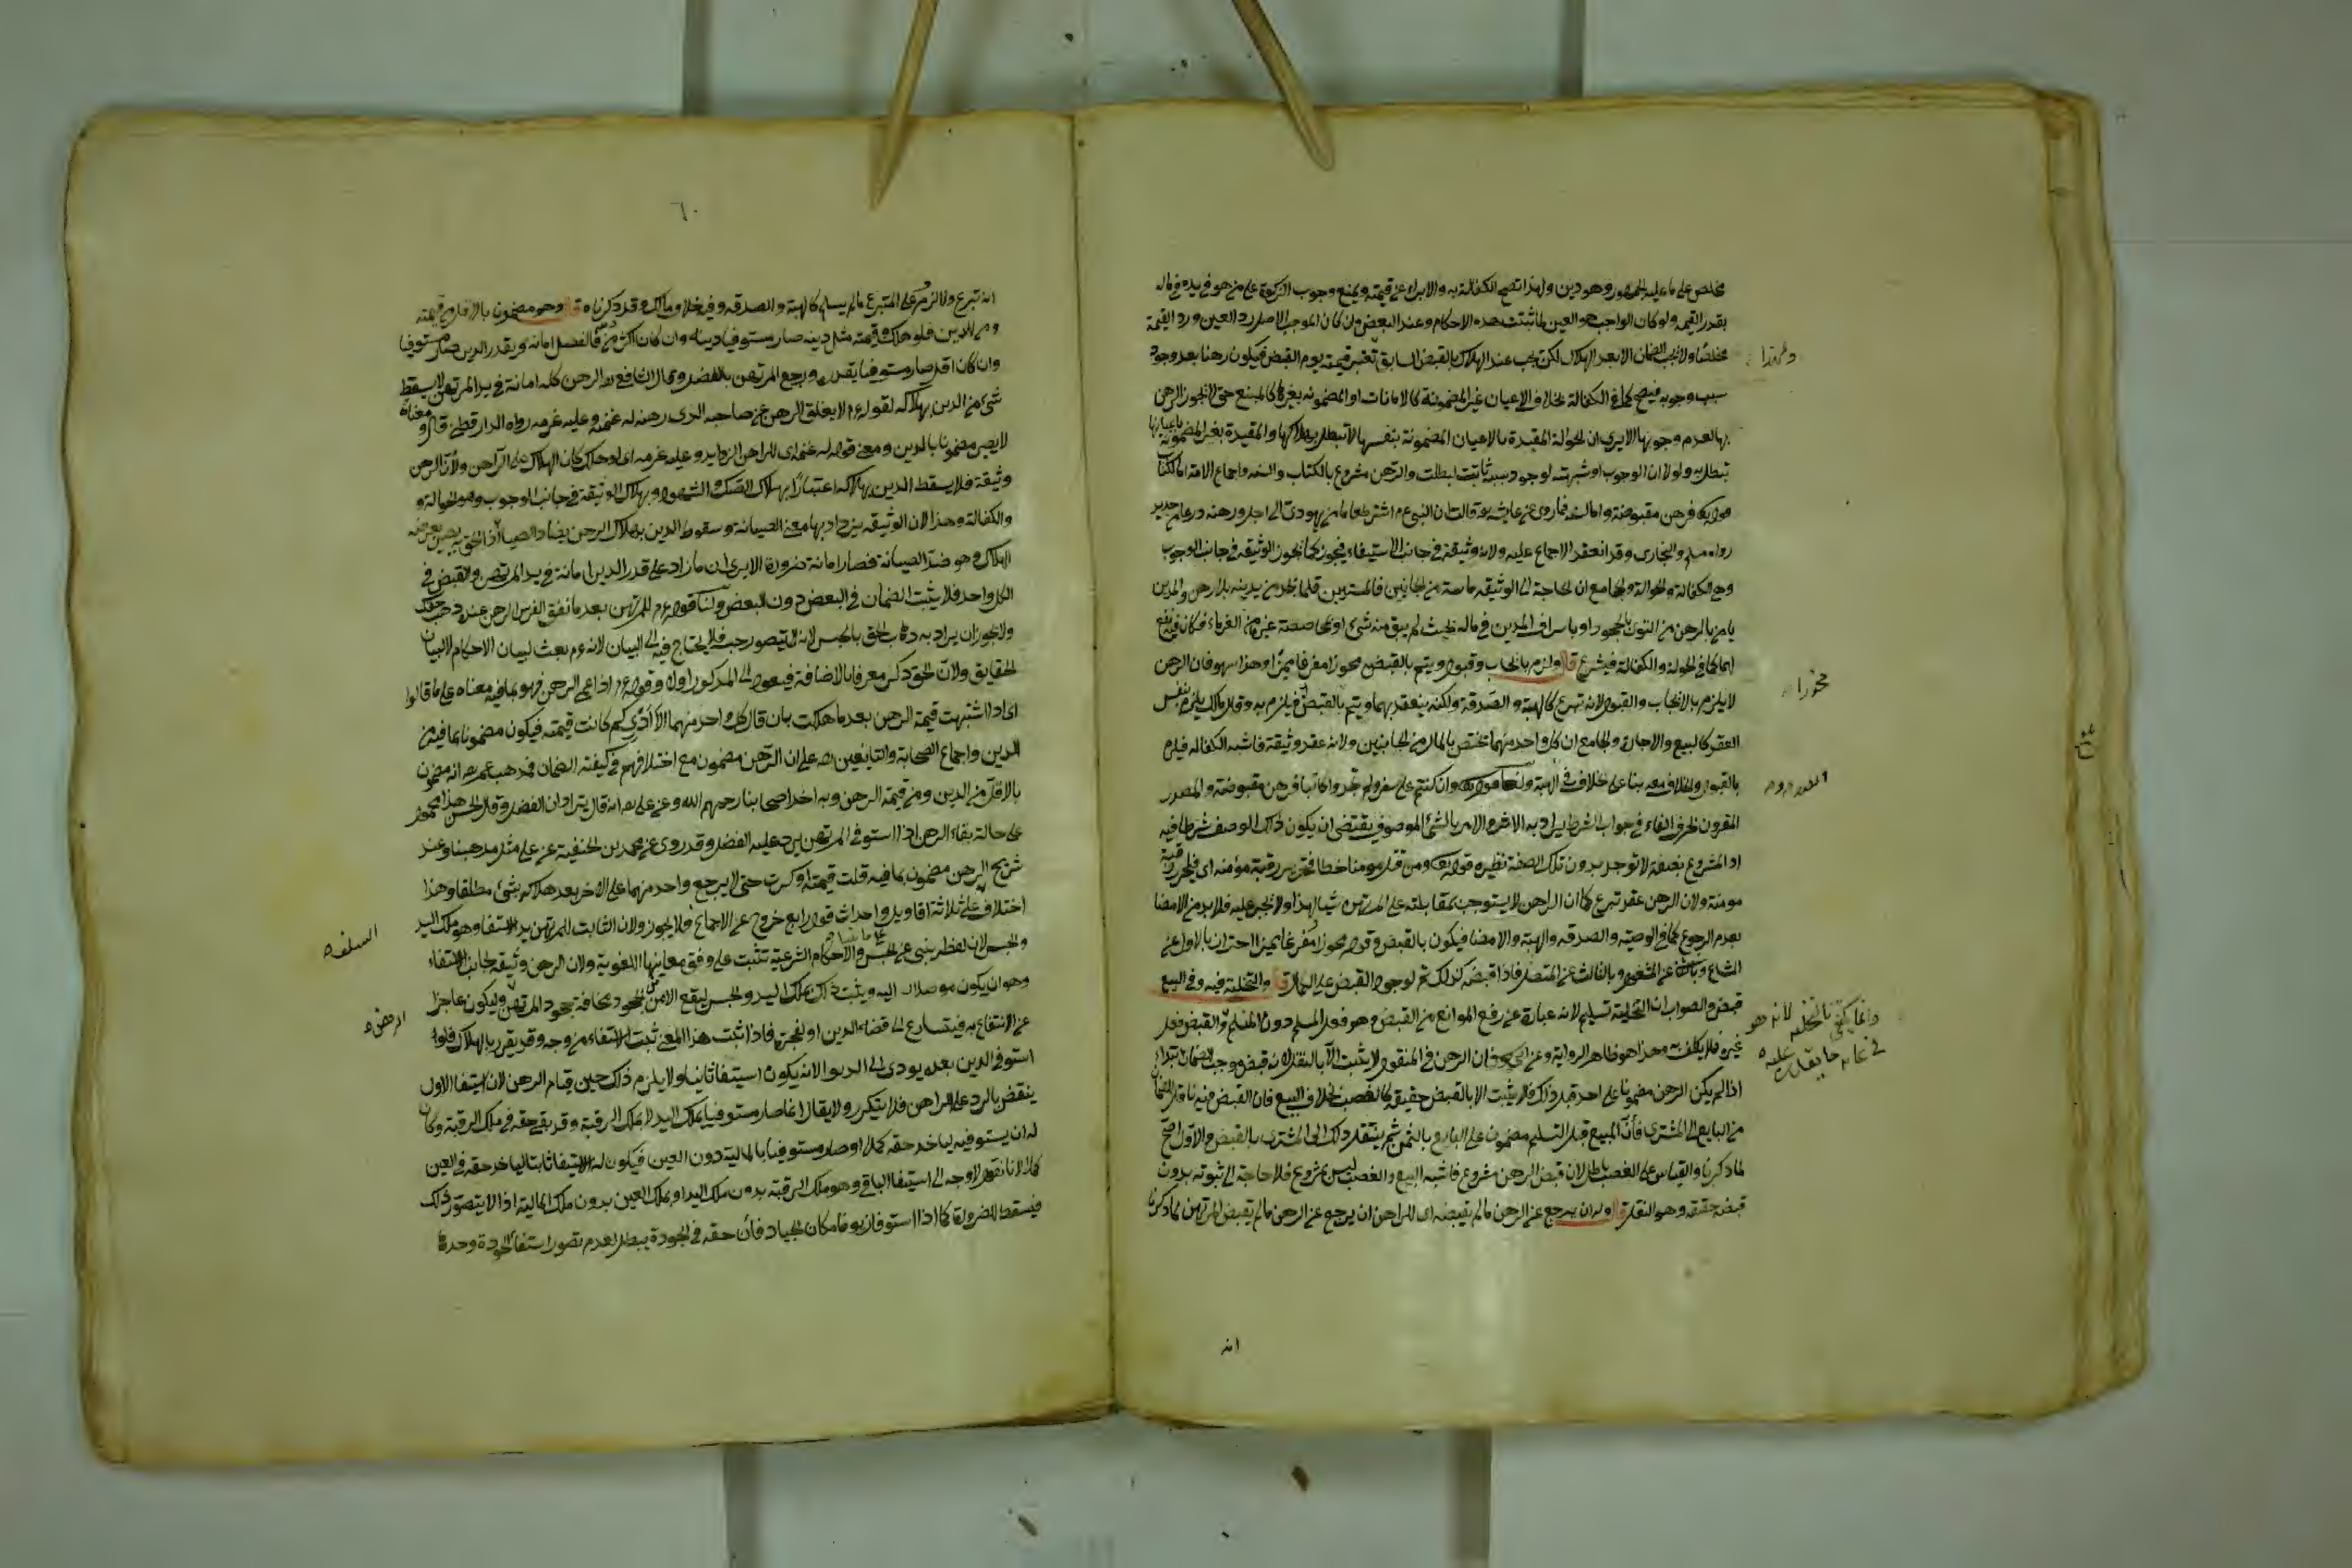 مخلص على ما عليه الجمهور وهو دين ولهذا تصح الكفالة به والابراء عن قيمته ويمنع وجوب الزكوة على من هو في يده في ماله
بقدر القيمة ولو كان الواجب هو العين لما ثبتت هذه الاحكام وعند البعض وان كان الموجب الاصلي رد العين ورد القيمة
مخلصا ولا يجب الضمان الا بعد الهلاك لكن يجب عند الهلاك بالقبض السابق تعتبر قيمته يوم القبض فيكون رهنا بعد وجود
سبب وجوبه فيصح كما في الكفالة بخلاف الاعيان غير المضمونة كالامانات او المضمونة بغيرها كالمبيع حتى لا يجوز الرهن
بها لعدم وجوبها الا يرى ان الحوالة المقيدة بالاعيان المضمونة بنفسها لا تبطل بهلاكها والمقيدة بغير المضمونة
تبطل به ولولا ان الوجوب او شبهته لوجود سببه ثابت لبطلت والرهن مشروع بالكتاب والسنة واجماع الامة اما الكتاب
فرهن مقبوضة واما السنة فما روي عن عايشة قالت ان النبي عم اشترى طعاما من يهودي الى اجل ورهنه درعا من حديد
رواه مسلم والبخاري وقد انعقد الاجماع عليه ولانه وثيقة في جانب الاستيفاء فيجوز كما يجوز الوثيقة في جانب الوجوب
وهي الكفالة والحوالة والجامع ان الحاجة الى الوثيقة ماسة من الجانبين فالمستدين قلما يجد من يدينه بلا رهن والمدين
يامن بالرهن من التوى بالجحود او باسراف المدين في ماله بحيث لم يبق منه شئ او بمحاصصة غيره من الغرماء فكان فيه نفع
لهما كما في الحوالة والكفالة فيشرع قال ولزم بايجاب وقبول ويتم بالقبض محوزا مفرغا مميزا وهذا سهو فان الرهن
لا يلزم بالايجاب والقبول لانه تبرع كالهبة والصدقة ولكنه ينعقد بهما ويتم بالقبض فيلزم به وقال مالك يلزم بنفس
العقد كالبيع والاجارة والجامع ان كل واحد منهما يختص بالمال من الجانبين ولانه عقد وثيقة فاشبه الكفالة فيلزم
بالقبول والخلاف معه بناء على خلاف في الهبة ولنا قوله تع وان كنتم على سفر ولم تجدوا كاتبا فرهن مقبوضة والمصدر
المقرون بحرف الفاء في جواب الشرط يراد به الامر والامر بالشئ الموصوف يقتضي ان يكون ذلك الوصف شرطا فيه
اذ المشروع بصفة لا توجد بدون تلك الصفة نظيره قوله تع ومن قتل مومنا خطا فتحرير رقبة مؤمنة اي فليحرر رقبة
مومنة ولان الرهن عقد تبرع كما ان الراهن لا يستوجب بمقابلته على المرتهن شيا لهذا ولا يجبر عليه فلا بد من الامضا
بعدم الرجوع كما في الوصية والصدقة والهبة والامضا فيكون بالقبض وقوله محوزا مفرغا مميزا احترازا بالاول عن
الشاع وبالثاني عن المشغول وبالثالث عن المتصل فاذا قبض كذلك تم لوجود القبض على الكمال قال والتخلية فيه وفي البيع
قبض والصواب ان التخلية تسليم لانه عبارة عن رفع الموانع من القبض وهو فعل المسلم دون المتسلم والقبض فعل
غيره فلا يكلف به وهذا هو ظاهر الرواية وعن ابي يوسف ان الرهن في المنقول لا يثبت الا بالنقل لانه قبض موجب للضمان ابتداء
اذا لم يكن الرهن مضمونا على احد قبل ذلك فلا يثبت الا بالقبض حقيقة كالغصب بخلاف البيع فان القبض فيه ناقل للضمان
من البايع الى المشتري فان المبيع قبل التسليم مضمون على البايع بالثمن ثم ينتقل ذلك الى المشتري بالقبض والاول اصح
لما ذكرنا والقياس على الغصب باطل لان قبض الرهن مشروع فاشبه البيع والغصب ليس بمشروع فلا حاجة الى ثبوته بدون
قبض حقيقة وهو النقل قال وله ان يرجع عن الرهن ما لم يقبضه اي للراهن ان يرجع عن الرهن ما لم يقبض المرتهن لما ذكرنا
ولهذا
محوزا
وانما يكتفي بالتخلية لانه هو
انه
٦٠
انه تبرع ولا لزوم على المتبرع ما لم يسلم كالهبة والصدقة وفيه خلاف مالك وقد ذكرناه قال وهو مضمون بالاقل من قيمته
ومن الدين فلو هلك وقيمته مثل دينه صار مستوفيا دينه وان كان اكثر من دينه فالفضل امانة وبقدر الدين صار مستوفيا
وان كان اقل صار مستوفيا بقدره ورجع المرتهن بالفضل وقال الشافعي ره الرهن كله امانة في يد المرتهن لا يسقط
شئ من الدين بهلاكه لقوله عم لا يغلق الرهن من صاحبه الذي رهنه له غنمه وعليه غرمه رواه الدارقطني قال ومعناه
لا يصير مضمونا بالدين ومعنى قوله له غنمه اي للراهن الزوايد وعليه غرمه اي لو هلك كان الهلاك على الراهن ولان الرهن
وثيقة فلا يسقط الدين بهلاكه اعتبارا بهلاك الصك والشهود وبهلاك الوثيقة في جانب الوجوب وهو الحوالة و
والكفالة وهذا لان الوثيقة يزداد بها معنى الصيانة وسقوط الدين بهلاك الرهن يضاد الصيانة اذ الحق به يصير بعرضة
الهلاك وهو ضد الصيانة فصار امانة ضرورة الا يرى ان ما زاد على قدر الدين امانة في يد المرتهن والقبض في
الكل واحد فلا يثبت الضمان في البعض دون البعض ولنا قوله عم للمرتهن بعد ما نفق الفرس الرهن عنده ذهب حقك
ولا يجوز ان يراد به ذهاب الحق بالحبس لانه لا يتصور حبسه فلا يحتاج فيه الى البيان لانه عم بعث لبيان الاحكام لا لبيان
الحقايق ولان الحق ذكر معرفا بالاضافة فيعود الى المذكور اولا وقوله عم اذا عمي الرهن فهو بما فيه معناه على ما قالوا
اي اذا اشتبهت قيمة الرهن بعد ما هلكت بان قال كل واحد منهما لا ادري كم كانت قيمته فيكون مضمونا بما فيه من
الدين واجماع الصحابة والتابعين على ان الرهن مضمون مع اختلافهم في كيفية الضمان فذهب عمر انه مضمون
بالاقل من الدين ومن قيمة الرهن وبه اخذ اصحابنا رحمهم الله وعن علي انه قال يترادان الفضل وقال الحسن هذا محمول
على حالة بقاء الرهن اذا استوفى المرتهن يرد عليه الفضل وقد روي عن محمد بن الحنفية عن علي مثل مذهبنا وعند
شريح الرهن مضمون بما فيه قلت قيمته او كثرت حتى لا يرجع واحد منهما على الاخر بعد هلاكه بشئ مطلقا وهذا
اختلاف على ثلاثة اقاويل واحداث قول رابع خروج عن الاجماع فلا يجوز ولان الثابت للمرتهن يد الاستيفا وهو ملك اليد
والحبس لان لفظه ينبي عن الحبس والاحكام الشرعية تثبت على وفق معانيها اللغوية ولان الرهن وثيقة لجانب الاستيفاء
وهو ان يكون موصلا اليه ويثبت ذلك بملك اليد والحبس ليقع الامن من الجحود مخافة جحود المرتهن وليكون عاجزا
عن الانتفاع به فيتسارع الى قضاء الدين او لضجره فاذا ثبت هذا المعنى ثبت الاستيفاء من وجه وقد تقرر بالهلاك فلو
استوفى الدين بعده يودي الى الربوا لانه يكون استيفا ثانيا ولا يلزم ذلك حين قيام الرهن لان الاستيفا الاول
ينتقض بالرد على الراهن فلا يتكرر ولا يقال انما صار مستوفيا بملك اليد لا بملك الرقبة وقد بقي حقه في ملك الرقبة وكان
له ان يستوفيه لياخذ حقه كملا او صار مستوفيا بالمالية دون العين فيكون له الاستيفا ثابتا لياخذ حقه في العين
كملا لانا نقول لا وجه الى استيفا الباقي وهو ملك الرقبة بدون ملك اليد او ملك العين بدون ملك المالية اذ لا يتصور ذلك
فيسقط للضرورة كما اذا استوفى زيوفا مكان الجياد فان حقه في الجودة يبطل لعدم تصور استيفاء الجودة وحدها